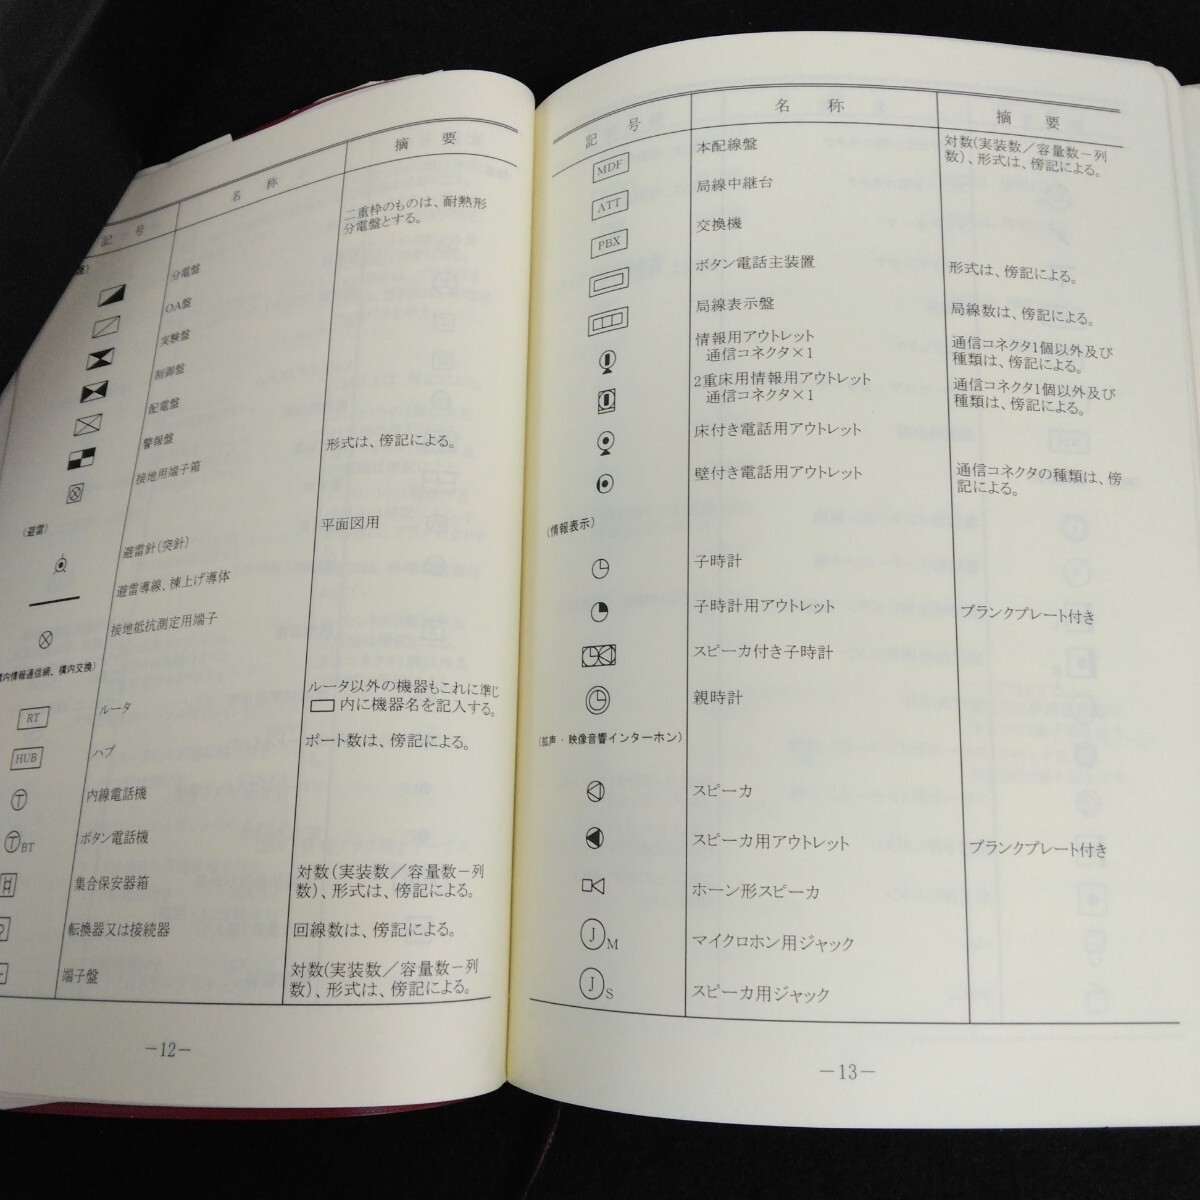 記 号 名 称 摘 要
二重枠のものは、耐熱形
分電盤とする。
分電盤
OA盤
実験盤
制御盤
配電盤
警報盤 形式は、傍記による。
接地用端子箱
(避雷)
避雷針(突針) 平面図用
避雷導線、棟上げ導体
接地抵抗測定用端子
構内情報通信網、構内交換)
RT ルータ ルータ以外の機器もこれに準じ
内に機器名を記入する。
HUB ハブ ポート数は、傍記による。
T 内線電話機
T BT ボタン電話機
集合保安器箱 対数(実装数/容量数-列
数)、形式は、傍記による。
転換器又は接続器 回線数は、傍記による。
端子盤 対数(実装数/容量数-列
数)、形式は、傍記による。
-12-
記 号 名 称 摘 要
MDF 本配線盤 対数(実装数/容量数-列
数)、形式は、傍記による。
ATT 局線中継台
PBX 交換機
ボタン電話主装置 形式は、傍記による。
局線表示盤 局線数は、傍記による。
情報用アウトレット 通信コネクタ1個以外及び
通信コネクタ×1 種類は、傍記による。
2重床用情報用アウトレット 通信コネクタ1個以外及び
通信コネクタ×1 種類は、傍記による。
床付き電話用アウトレット
壁付き電話用アウトレット 通信コネクタの種類は、傍
記による。
(情報表示)
子時計
子時計用アウトレット ブランクプレート付き
スピーカ付き子時計
親時計
(拡声・映像音響インターホン)
スピーカ
スピーカ用アウトレット ブランクプレート付き
ホーン形スピーカ
J M マイクロホン用ジャック
J S スピーカ用ジャック
-13-